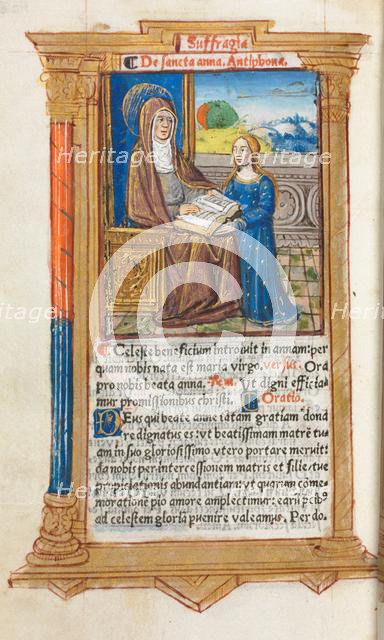 Suffragia
¶ De sancta anna. Antiphona.
¶ Celeste beneficium introiuit in annam: per
quam nobis nata est maria virgo. versus. Ora
pro nobis beata anna. Rem. Ut digni efficia⸗
mur promissionibus christi. ¶ Oratio.
DEus qui beate anne tãtam gratiam dona
re dignatus es: vt beatissimam matrẽ tu⸗
am in suo gloriosissimo vtero portare meruit:
da nobis per intercessionem matris et filie, tue
propiciationis abundantiam: vt quarum come⸗
morationẽ pio amore amplectimur: earũ pcib⁹
ad celestem gloriã puenire valeamus. Per do.
Heritage
Heritage
Heritage
Heritage
Heritage
Heritage
Heritage
Heritage